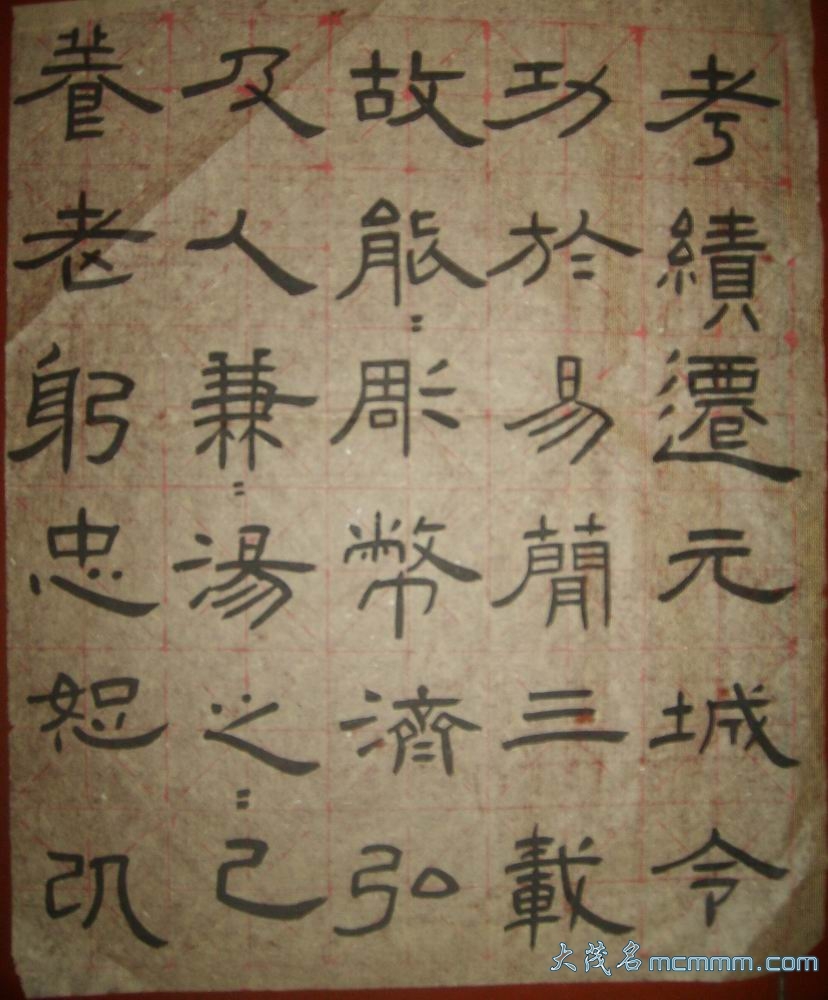 養老躬忠恕以
及人兼=湯之=己
故能=彫幣濟弘
功於易簡三載
考績遷元城令
大茂名mcmmm.com